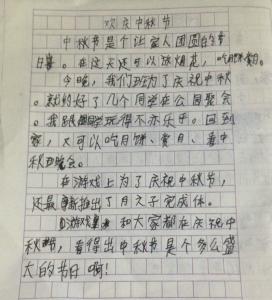 欢庆中秋节
中秋节是个让家人团圆的节
日。在这天还可以放烟花,吃月饼赏月。
今晚,我们班为了庆祝中秋
。就约好了几个同学在公园聚会
。我跟同学玩得不亦乐乎。回到
家,又可以吃月饼、赏月、看中
秋晚会。
在游戏上为了庆祝中秋节,
还最新推出了月之子完成体。
游戏里和大家都在庆祝中
秋节,看得出中秋节是个多么盛
大的节日啊!